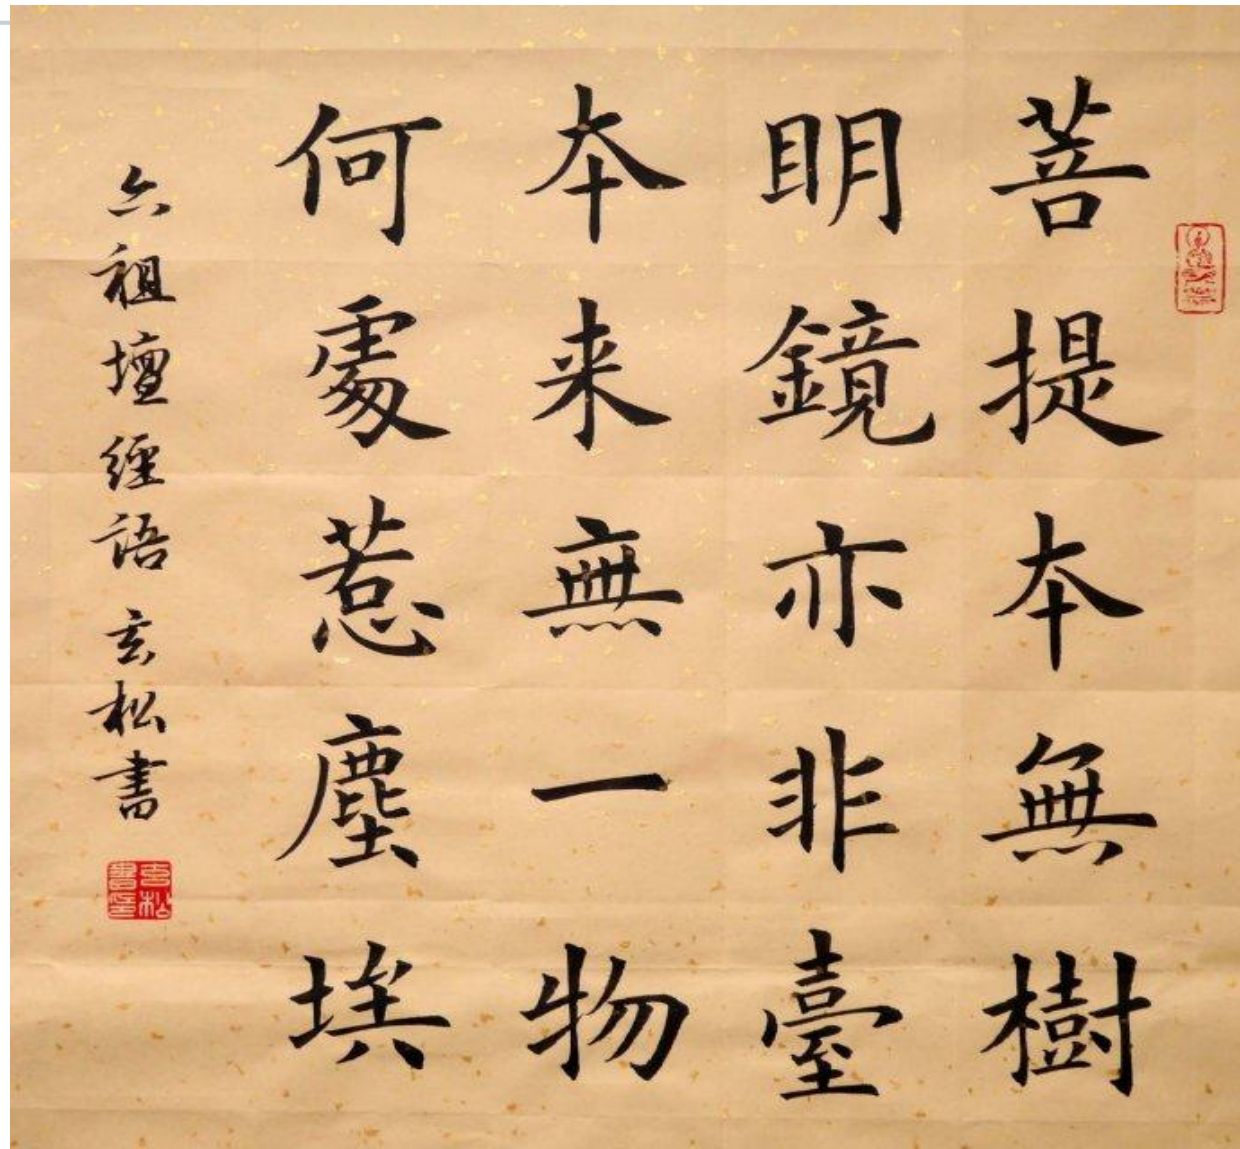 菩提本無樹
明鏡亦非臺
本来無一物
何處惹塵埃
六祖壇經語 玄松書